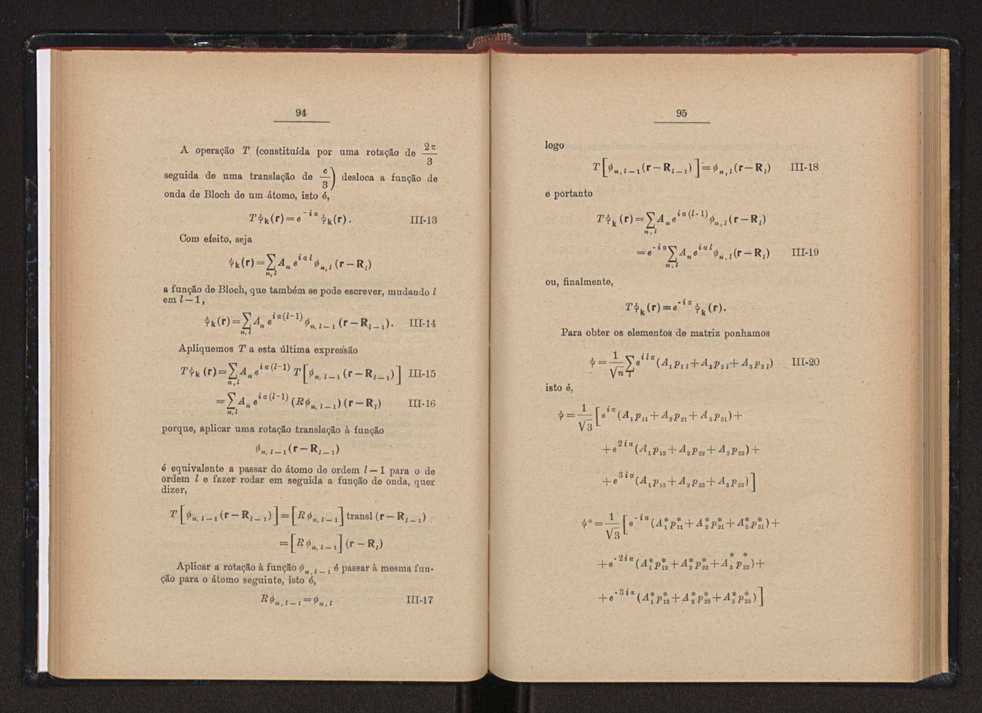 94
A operação T (constituída por uma rotação de 2π/3
seguida de uma translação de c/3) desloca a função de
onda de Bloch de um átomo, isto é,
Tψk(r) = e^{-iα} ψk(r). III-13
Com efeito, seja
ψk(r) = ∑_{n,l} A_n e^{iαl} φ_{n,l} (r − R_l)
a função de Bloch, que também se pode escrever, mudando l
em l − 1,
ψk(r) = ∑_{n,l} A_n e^{iα(l-1)} φ_{n,l−1} (r − R_{l−1}). III-14
Apliquemos T a esta última expressão
Tψk (r) = ∑_{n,l} A_n e^{iα(l-1)} T[φ_{n,l−1} (r − R_{l−1})] III-15
= ∑_{n,l} A_n e^{iα(l-1)} (Rφ_{n,l−1}) (r − R_l) III-16
porque, aplicar uma rotação translação à função
φ_{n,l−1} (r − R_{l−1})
é equivalente a passar do átomo de ordem l − 1 para o de
ordem l e fazer rodar em seguida a função de onda, quer
dizer,
T[φ_{n,l−1} (r − R_{l−1})] = [Rφ_{n,l−1}] transl (r − R_{l−1})
= [Rφ_{n,l−1}] (r − R_l)
Aplicar a rotação à função φ_{n,l−1} é passar à mesma fun-
ção para o átomo seguinte, isto é,
Rφ_{n,l−1} = φ_{n,l} III-17
95
logo
T[φ_{n,l−1} (r − R_{l−1})] = φ_{n,l} (r − R_l) III-18
e portanto
Tψk (r) = ∑_{n,l} A_n e^{iα(l-1)} φ_{n,l} (r − R_l)
= e^{-iα} ∑_{n,l} A_n e^{iαl} φ_{n,l} (r − R_l) III-19
ou, finalmente,
Tψk (r) = e^{-iα} ψk (r).
Para obter os elementos de matriz ponhamos
ψ = 1/√n ∑_l e^{ilα} (A_1 p_{1l} + A_2 p_{2l} + A_3 p_{3l}) III-20
isto é,
ψ = 1/√3 [e^{iα} (A_1 p_{11} + A_2 p_{21} + A_3 p_{31}) +
+ e^{2iα} (A_1 p_{12} + A_2 p_{22} + A_3 p_{32}) +
+ e^{3iα} (A_1 p_{13} + A_2 p_{23} + A_3 p_{33})]
ψ* = 1/√3 [e^{-iα} (A*_1 p*_{11} + A*_2 p*_{21} + A*_3 p*_{31}) +
+ e^{-2iα} (A*_1 p*_{12} + A*_2 p*_{22} + A*_3 p*_{32}) +
+ e^{-3iα} (A*_1 p*_{13} + A*_2 p*_{23} + A*_3 p*_{33})]